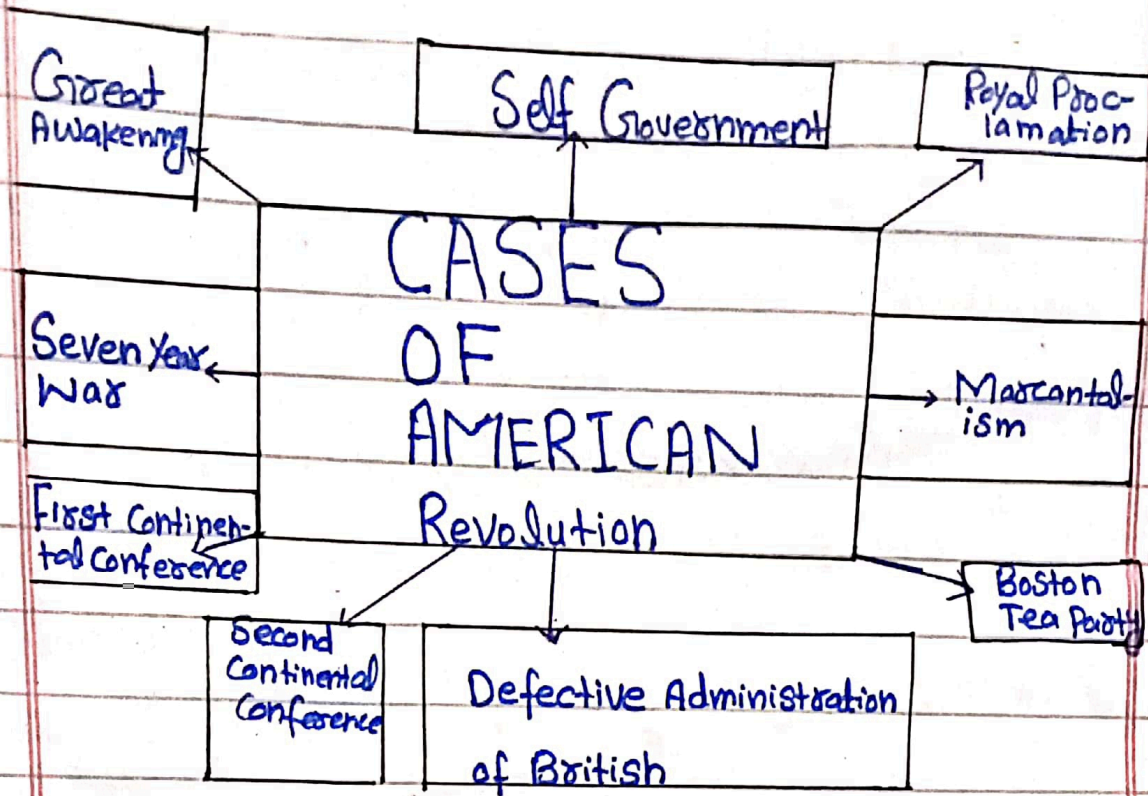 Great
Awakening
Self Government
Royal Proc-
lamation
CASES
OF
AMERICAN
Revolution
Seven Year
War
Marcantal-
ism
First Continen-
tal Conference
Boston
Tea Party
Second
Continental
Conference
Defective Administration
of British